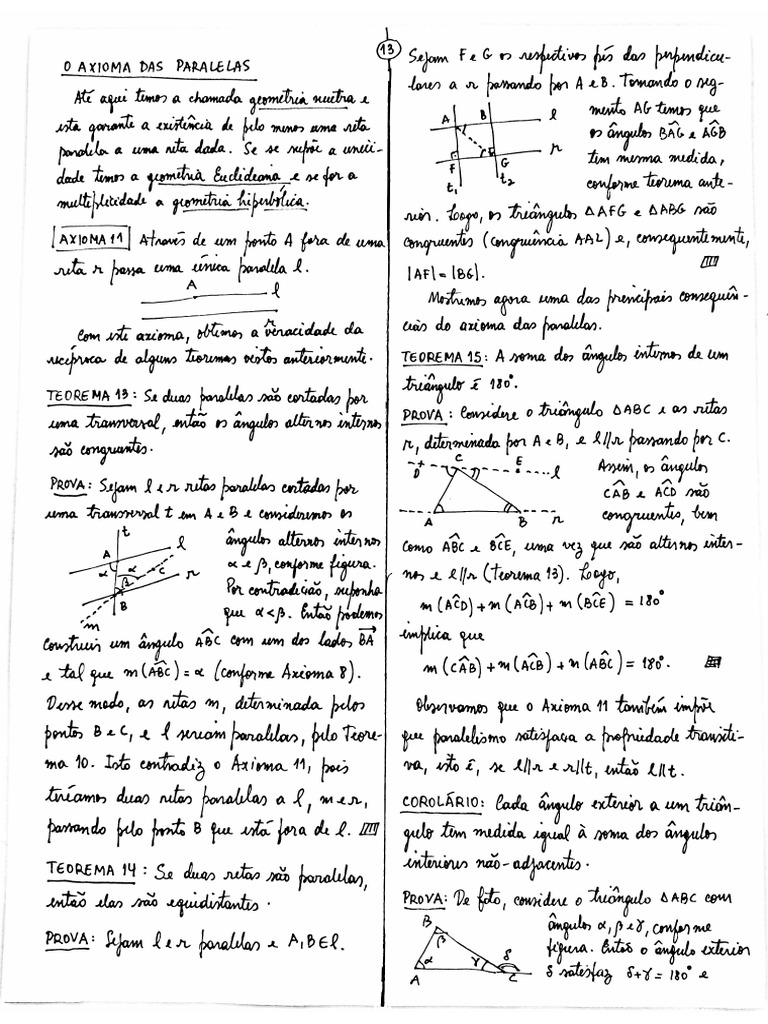 13
O AXIOMA DAS PARALELAS
Até aqui temos a chamada geometria neutra e
esta garante a existência de pelo menos uma reta
paralela a uma reta dada. Se se supõe a unici-
dade temos a geometria Euclideana e se for a
multiplicidade a geometria hiperbólica.
AXIOMA 11 Através de um ponto A fora de uma
reta r passa uma única paralela l.
A
l
r
Com este axioma, obtemos a veracidade da
recíproca de alguns teoremas vistos anteriormente.
TEOREMA 13: Se duas paralelas são cortadas por
uma transversal, então os ângulos alternos internos
são congruentes.
PROVA: Sejam l e r retas paralelas cortadas por
uma transversal t em A e B e consideremos os
ângulos alternos internos
α e β, conforme figura.
Por contradição, suponha
que α < β. Então podemos
t
A
l
α
α
C
r
β
B
m
construir um ângulo AB̂C com um dos lados BA
e tal que m(AB̂C) = α (conforme Axioma 8).
Desse modo, as retas m, determinada pelos
pontos B e C, e l seriam paralelas, pelo Teore-
ma 10. Isto contradiz o Axioma 11, pois
teríamos duas retas paralelas a l, m e r,
passando pelo ponto B que está fora de l.
TEOREMA 14: Se duas retas são paralelas,
então elas são equidistantes.
PROVA: Sejam l e r paralelas e A, B ∈ l.
Sejam F e G os respectivos pés das perpendicu-
lares a r passando por A e B. Tomando o seg-
mento AG temos que
os ângulos BÂG e AĜB
tem mesma medida,
conforme teorema ante-
A
B
l
r
F
G
t₁
t₂
rior. Logo, os triângulos ΔAFG e ΔABG são
congruentes (congruência AAL) e, consequentemente,
|AF| = |BG|.
Mostremos agora uma das principais consequên-
cias do axioma das paralelas.
TEOREMA 15: A soma dos ângulos internos de um
triângulo é 180°.
PROVA: Considere o triângulo ΔABC e as retas
r, determinada por A e B, e l//r passando por C.
D
C
E
l
A
B
r
Assim, os ângulos
CÂB e AĈD são
congruentes, bem
como AB̂C e BĈE, uma vez que são alternos inter-
nos e l//r (Teorema 13). Logo,
m(AĈD) + m(AĈB) + m(BĈE) = 180°
implica que
m(CÂB) + m(AĈB) + m(AB̂C) = 180°.
Observamos que o Axioma 11 também impõe
que paralelismo satisfaça a propriedade transiti-
va, isto é, se l//r e r//t, então l//t.
COROLÁRIO: Cada ângulo exterior a um triân-
gulo tem medida igual à soma dos ângulos
interiores não-adjacentes.
PROVA: De fato, considere o triângulo ΔABC com
ângulos α, β e γ, conforme
figura. Então o ângulo exterior
δ satisfaz δ + γ = 180° e
B
β
α
A
γ
δ
C